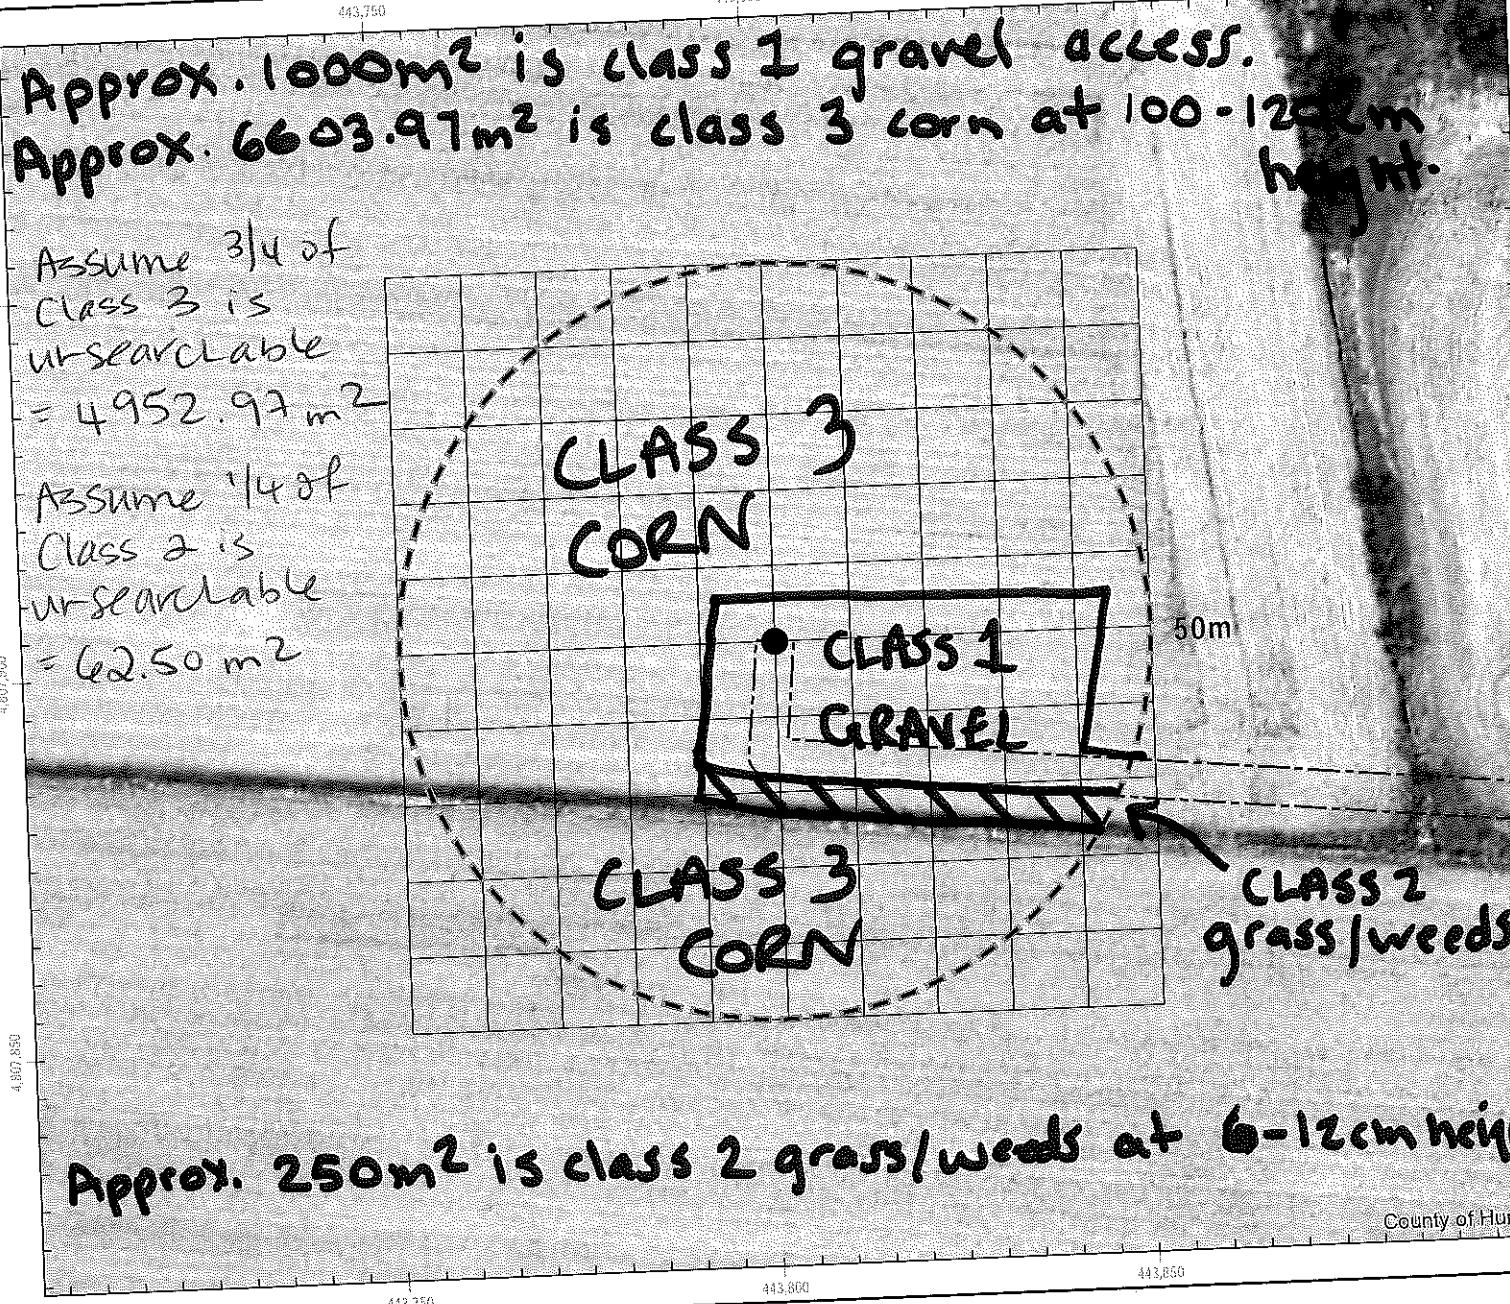 443,750
Approx. 1000m² is class 1 gravel access.
Approx. 6603.97m² is class 3 corn at 100-120cm
height.
Assume 3/4 of
Class 3 is
unsearchable
= 4952.97 m²
Assume 1/4 of
Class 2 is
unsearchable
= 62.50 m²
CLASS 3
CORN
50m
CLASS 1
GRAVEL
CLASS 3
CORN
CLASS 2
grass/weeds
4,807,850
Approx. 250m² is class 2 grass/weeds at 6-12cm heig
County of Hur
443,750
443,800
443,850